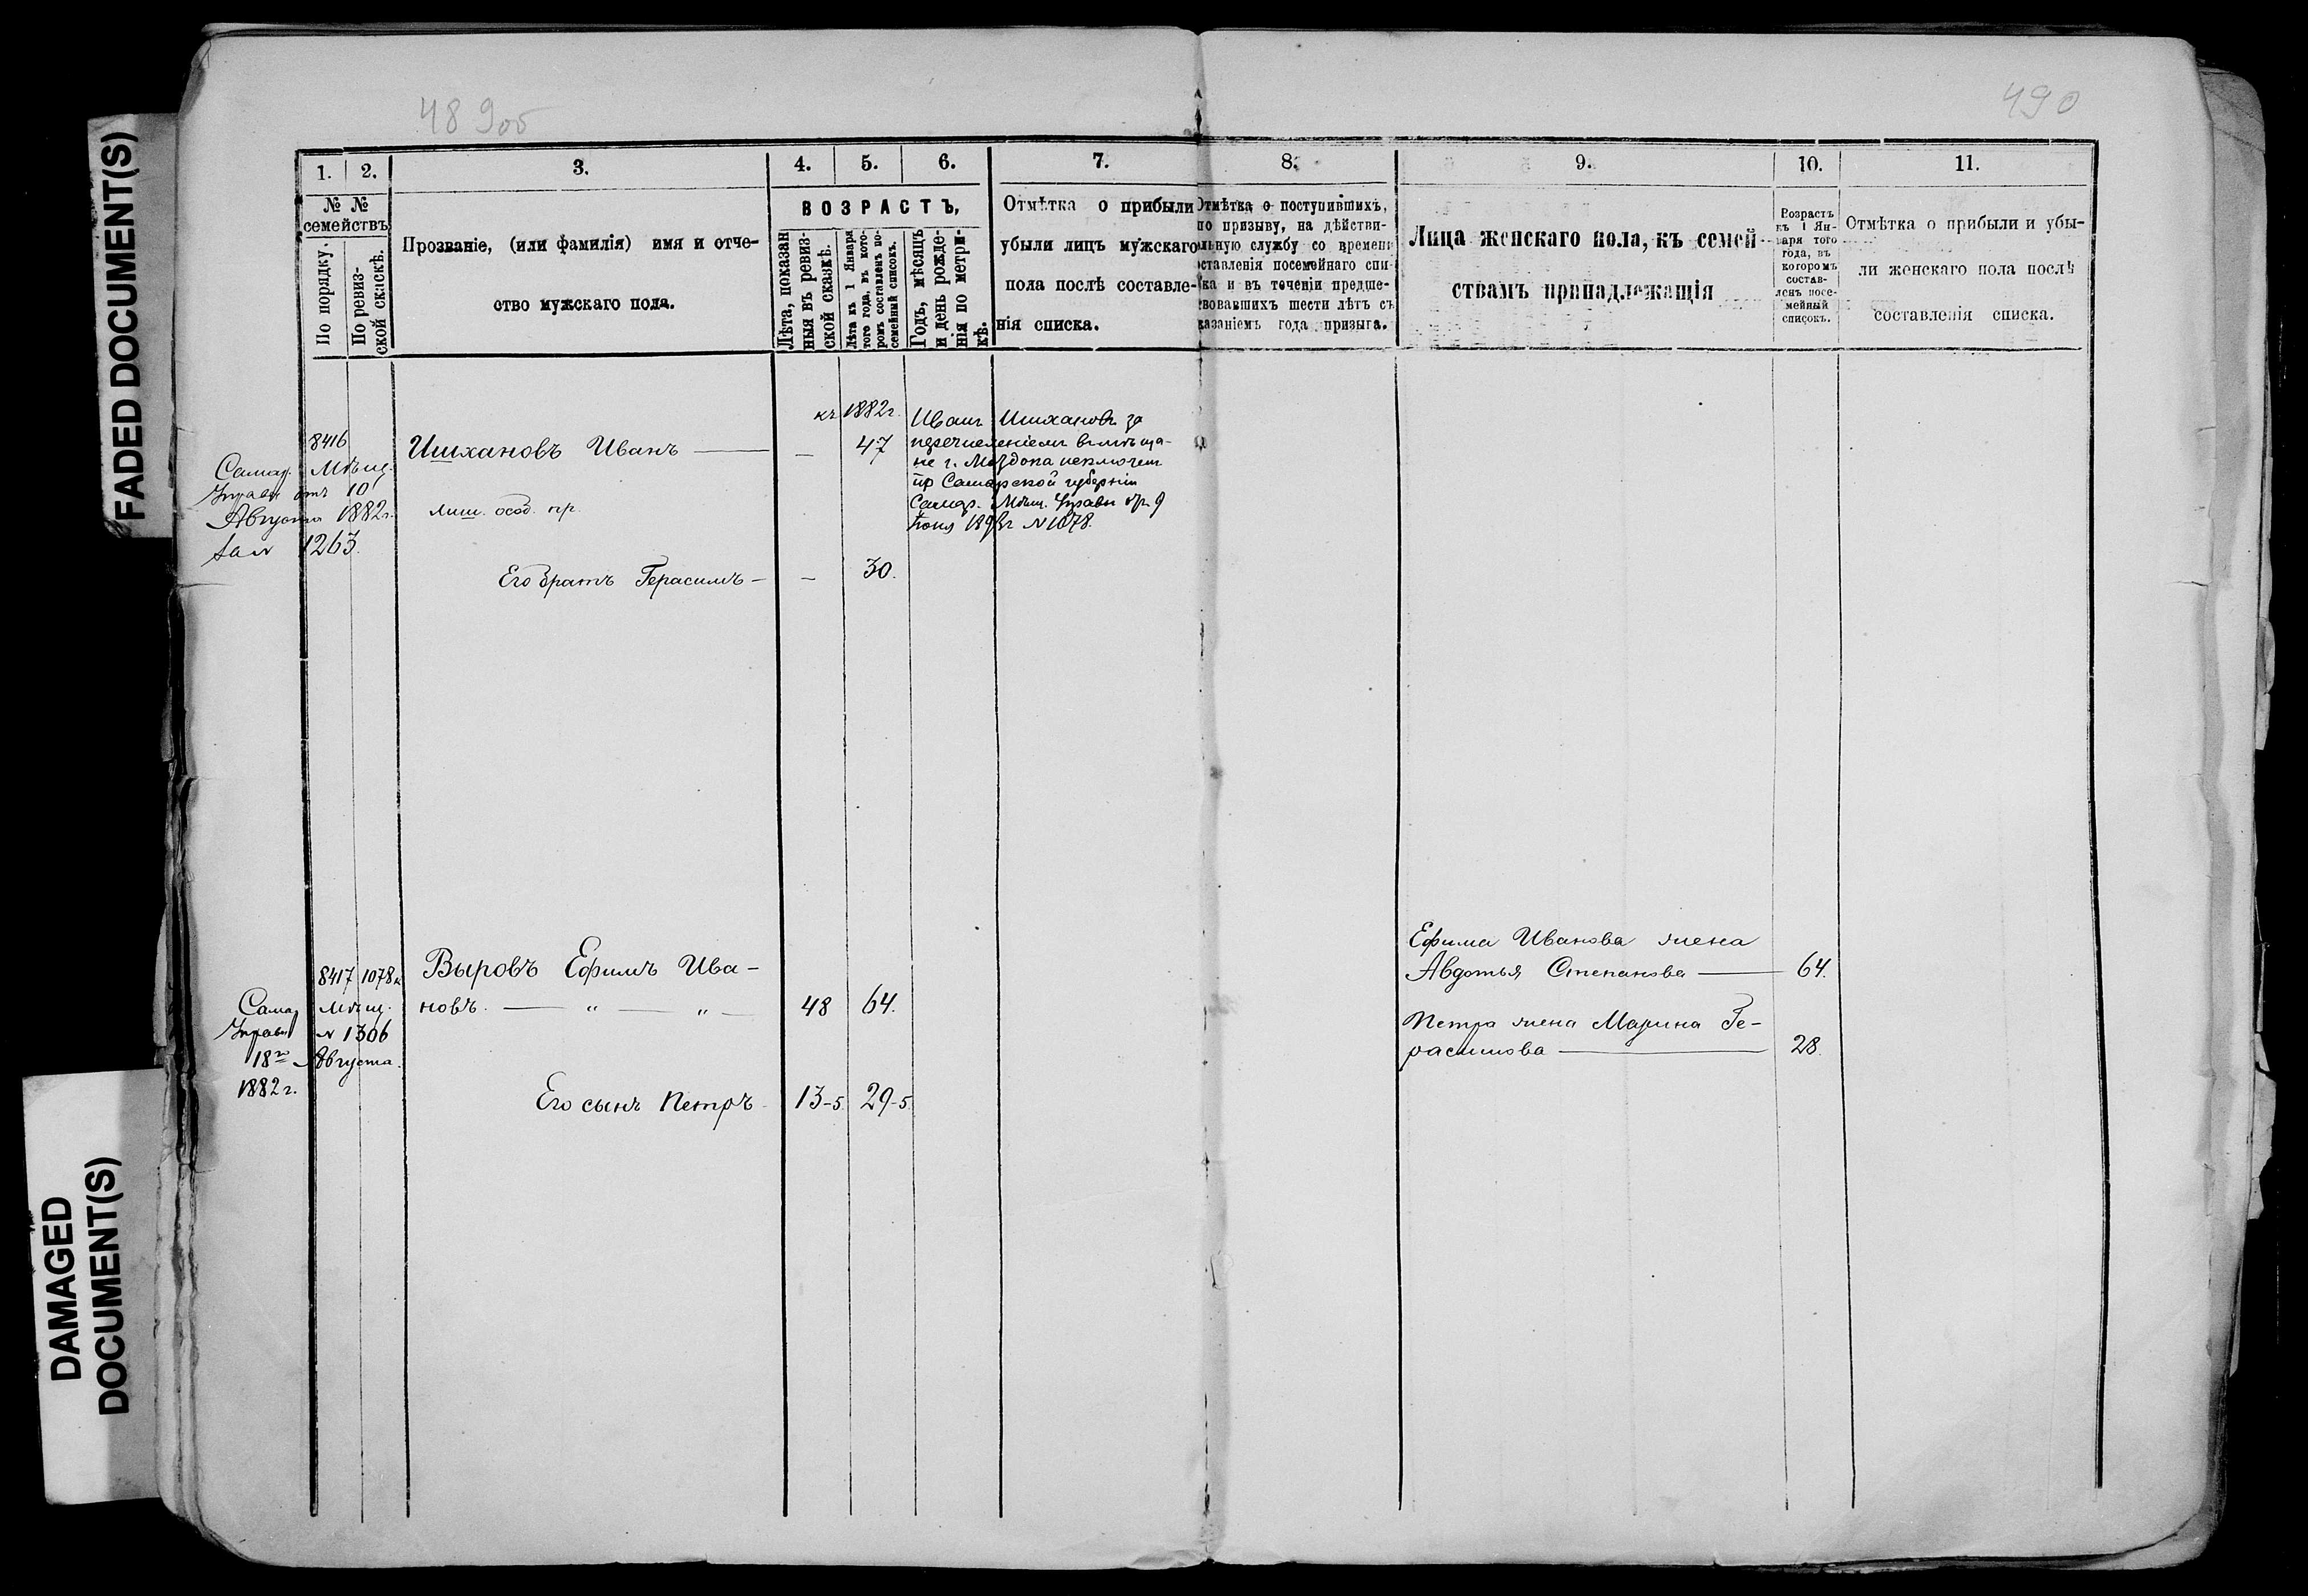 FADED DOCUMENT(S)
DAMAGED
DOCUMENT(S)
489об
490
1. 2. 3. 4. 5. 6. 7. 8. 9. 10. 11.
№ №
семействъ
По порядку.
По ревиз-
ской скаскѣ.
Прозваніе, (или фамилія) имя и отче-
ство мужскаго пола.
ВОЗРАСТЪ,
Лѣта, показан
ныя въ ревиз-
ской сказкѣ.
Лѣта къ 1 Января
того года, въ кото-
ромъ составленъ по-
семейный списокъ.
Годъ, мѣсяцъ
и день рожде-
нія по метри-
кѣ.
Отмѣтка о прибыли
убыли лицъ мужскаго
пола послѣ составле-
нія списка.
Отмѣтка о поступившихъ,
по призыву, на дѣйстви-
льную службу со времени
оставленія посемейнаго спи-
ка и въ теченіи предше-
вовавшихъ шести лѣтъ съ
казаніемъ года призыва.
Лица женскаго пола, къ семей-
ствамъ принадлежащія
Возрастъ
къ 1 Ян-
варя того
года, въ
которомъ
состав-
ленъ посе-
мейный
списокъ.
Отмѣтка о прибыли и убы-
ли женскаго пола послѣ
составленія списка.
къ 1882г.
8416
Ишхановъ Иванъ — — 47
Самар. Мѣщ.
Управы отъ 10
Августа 1882г.
за № 1263.
Иванъ Ишхановъ за
перечисленіемъ въ мѣща-
не г. Моздока исключенъ
Самарской губерніи
Самар. Мѣщ. Управы
№ 1078.
лиш. особ. пр.
Его братъ Герасимъ — — 30.
8417 1078
Выровъ Ефимъ Ива-
новъ. — „ — „ — 48 64.
Самар Мѣщ.
Управы № 1306
18го Августа
1882 г.
Его сынъ Петръ 13-5. 29-5
Ефима Иванова жена
Авдотья Степанова — 64.
Петра жена Марина Ге-
расимова — 28.